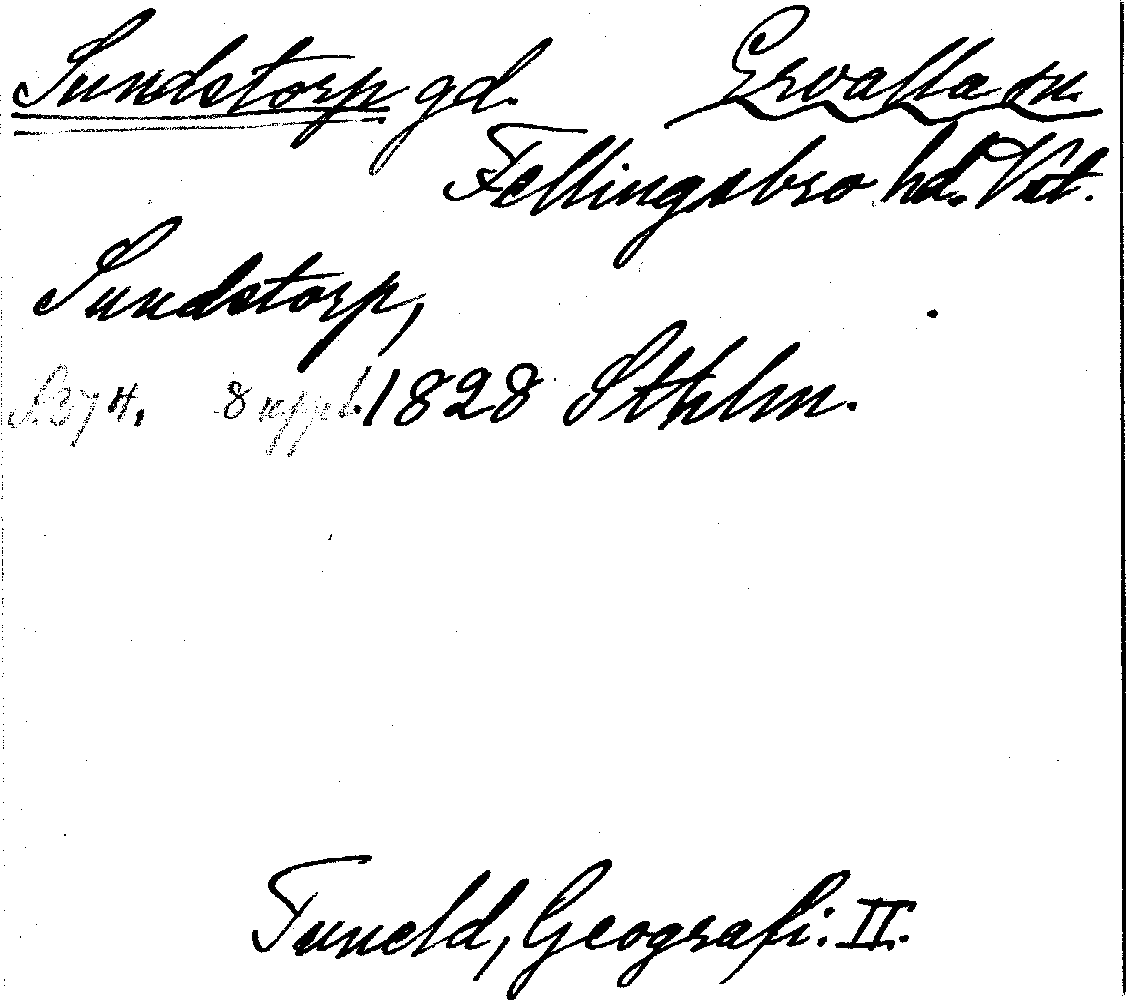 Sundstorp gd. Ervalla sn.
Fellingsbro hd. Vstm.
Sundstorp,
S. 374. 8 uppl. 1828 Sthlm.
Tuneld, Geografi: II.